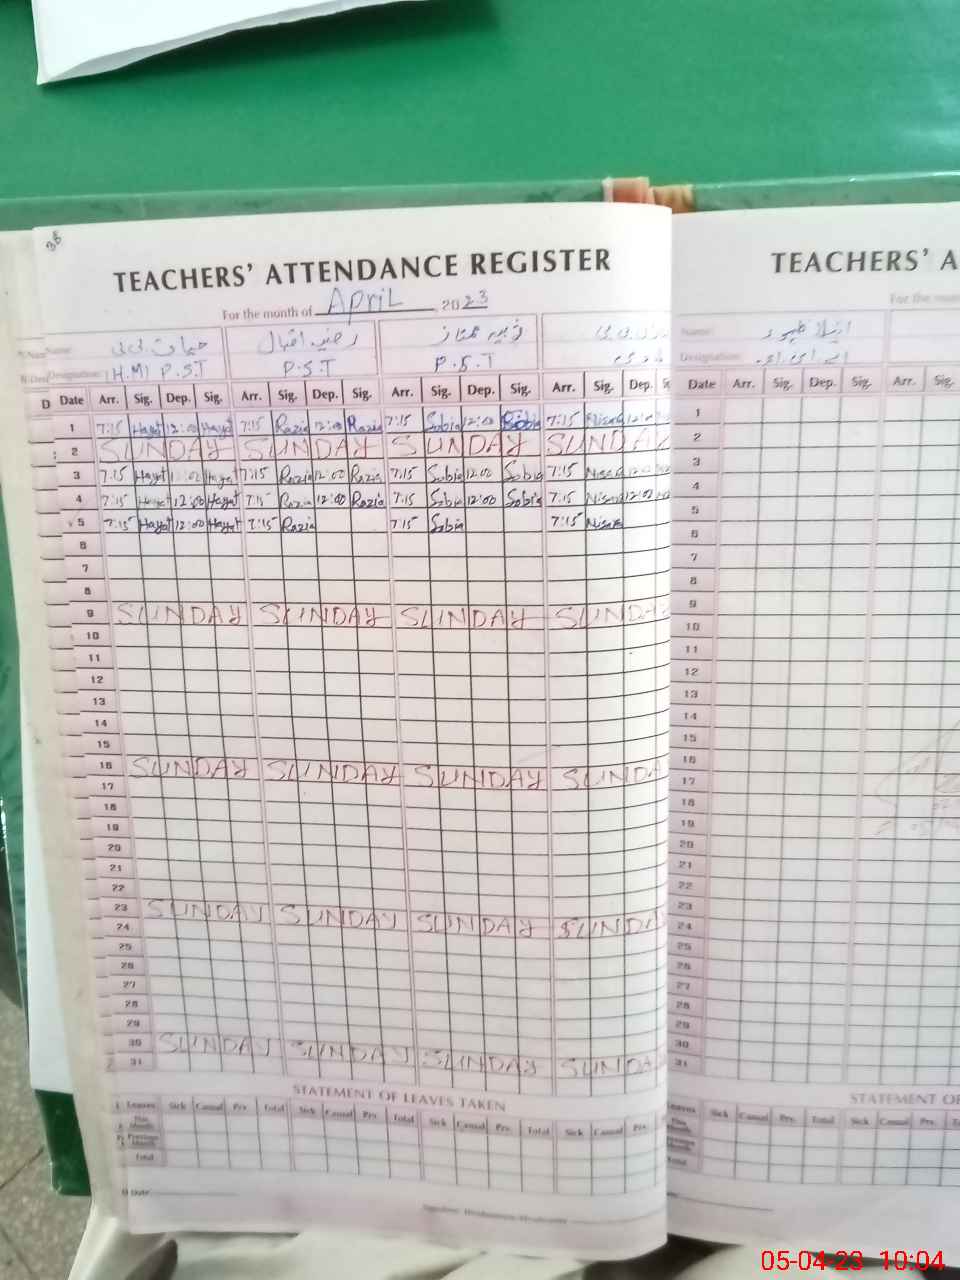 38
TEACHERS' ATTENDANCE REGISTER
For the month of April 2023
Name: حیات بی بی رضیہ اقبال
Designation: (H.M) P.S.T P.S.T P.S.T
Date Arr. Sig. Dep. Sig. Arr. Sig. Dep. Sig. Arr. Sig. Dep. Sig. Arr. Sig. Dep.
1 7:15 Hayat 12:00 Hayat 7:15 Razia 12:00 Razia 7:15 Sobia 12:00 Sobia 7:15 12:00
2 SUNDAY SUNDAY SUNDAY SUNDAY
3 7:15 Hayat 12:00 Hayat 7:15 Razia 12:00 Razia 7:15 Sobia 12:00 Sobia 7:15 12:00
4 7:15 Hayat 12:00 Hayat 7:15 Razia 12:00 Razia 7:15 Sobia 12:00 Sobia 7:15 12:00
5 7:15 Hayat 12:00 Hayat 7:15 Razia 7:15 Sobia 7:15
6
7
8
9 SUNDAY SUNDAY SUNDAY SUNDAY
10
11
12
13
14
15
16 SUNDAY SUNDAY SUNDAY SUNDA
17
18
19
20
21
22
23 SUNDAY SUNDAY SUNDAY SUNDA
24
25
26
27
28
29
30 SUNDAY SUNDAY SUNDAY SUNDA
31
STATEMENT OF LEAVES TAKEN
Leaves Sick Casual Prv. Total Sick Casual Prv. Total Sick Casual Prv. Total Sick Casual Prv.
This Month
Previous Month
Total
Date
TEACHERS' A
For the mon
Name:
Designation:
Date Arr. Sig. Dep. Sig. Arr. Sig.
1
2
3
4
5
6
7
8
9
10
11
12
13
14
15
16
17
18
19
20
21
22
23
24
25
26
27
28
29
30
31
STATEMENT OF
Leaves Sick Casual Prv. Total Sick Casual Prv. T
05-04-23 10:04